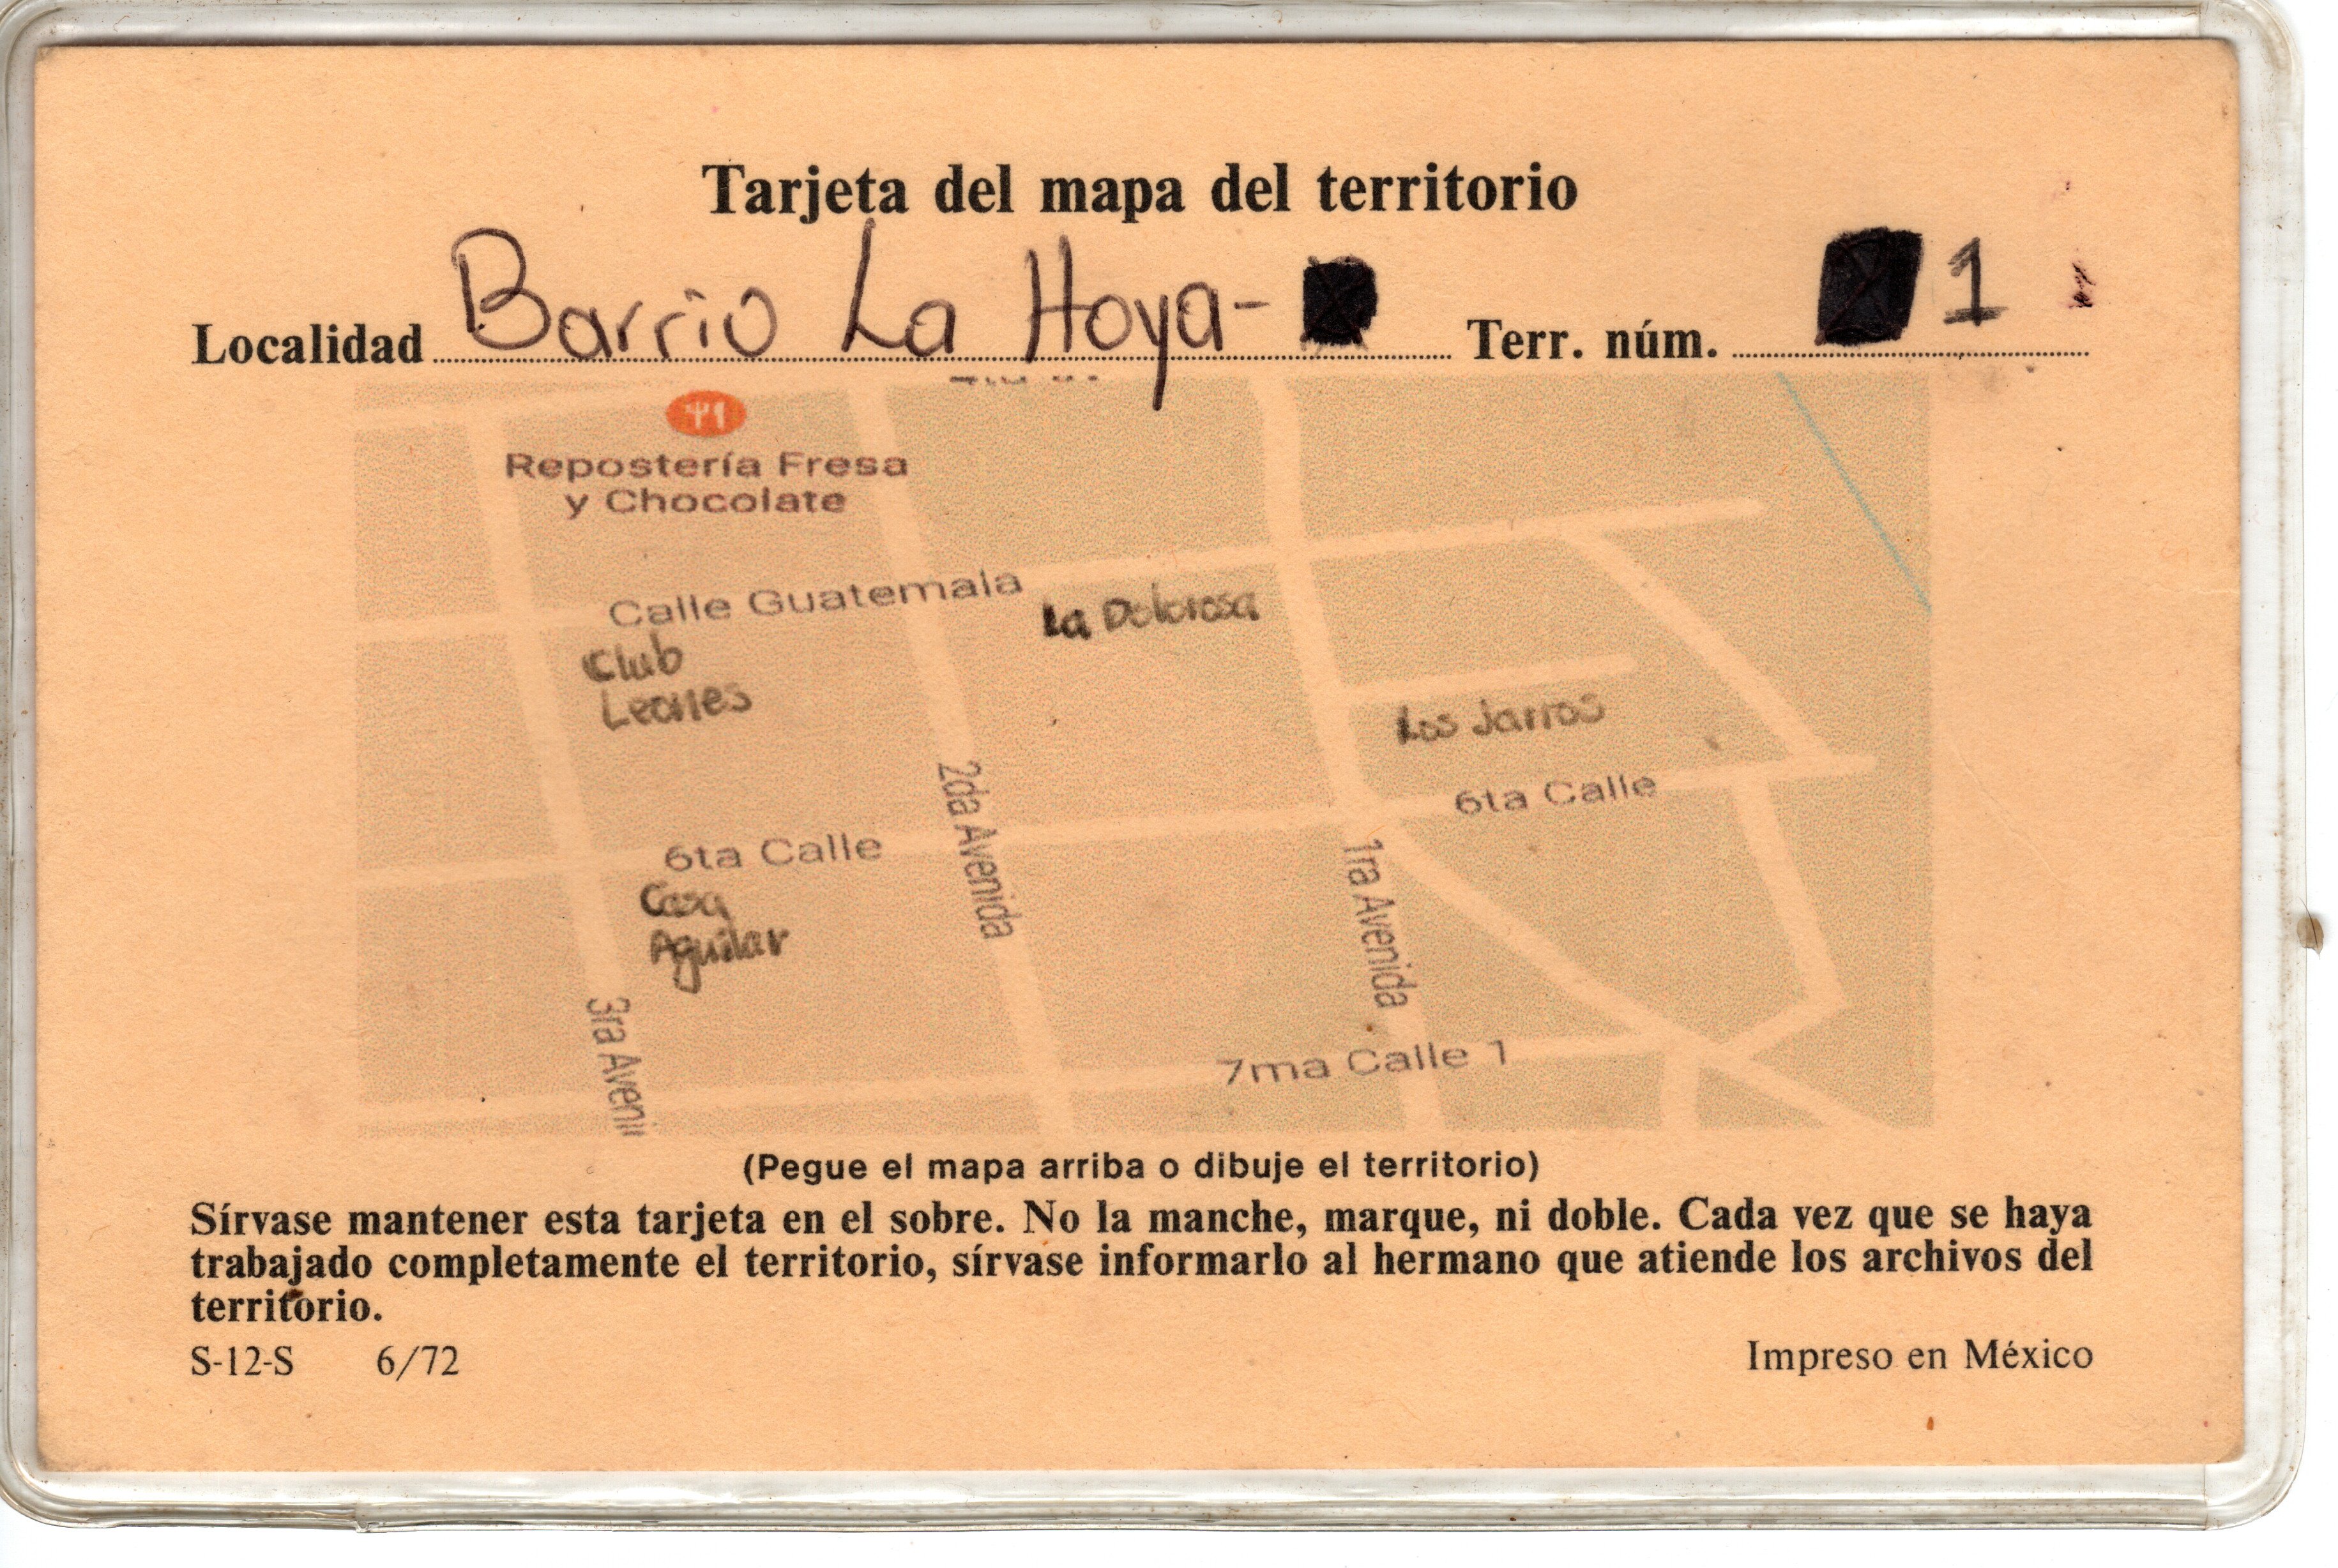 Tarjeta del mapa del territorio
Localidad Barrio La Hoya- Terr. núm. 1
Repostería Fresa
y Chocolate
Calle Guatemala
La Dolorosa
Club
Leones
Los Jarros
2da Avenida
6ta Calle
6ta Calle
1ra Avenida
Casa
Aguilar
3ra Aveni
7ma Calle 1
(Pegue el mapa arriba o dibuje el territorio)
Sírvase mantener esta tarjeta en el sobre. No la manche, marque, ni doble. Cada vez que se haya
trabajado completamente el territorio, sírvase informarlo al hermano que atiende los archivos del
territorio.
S-12-S 6/72 Impreso en México